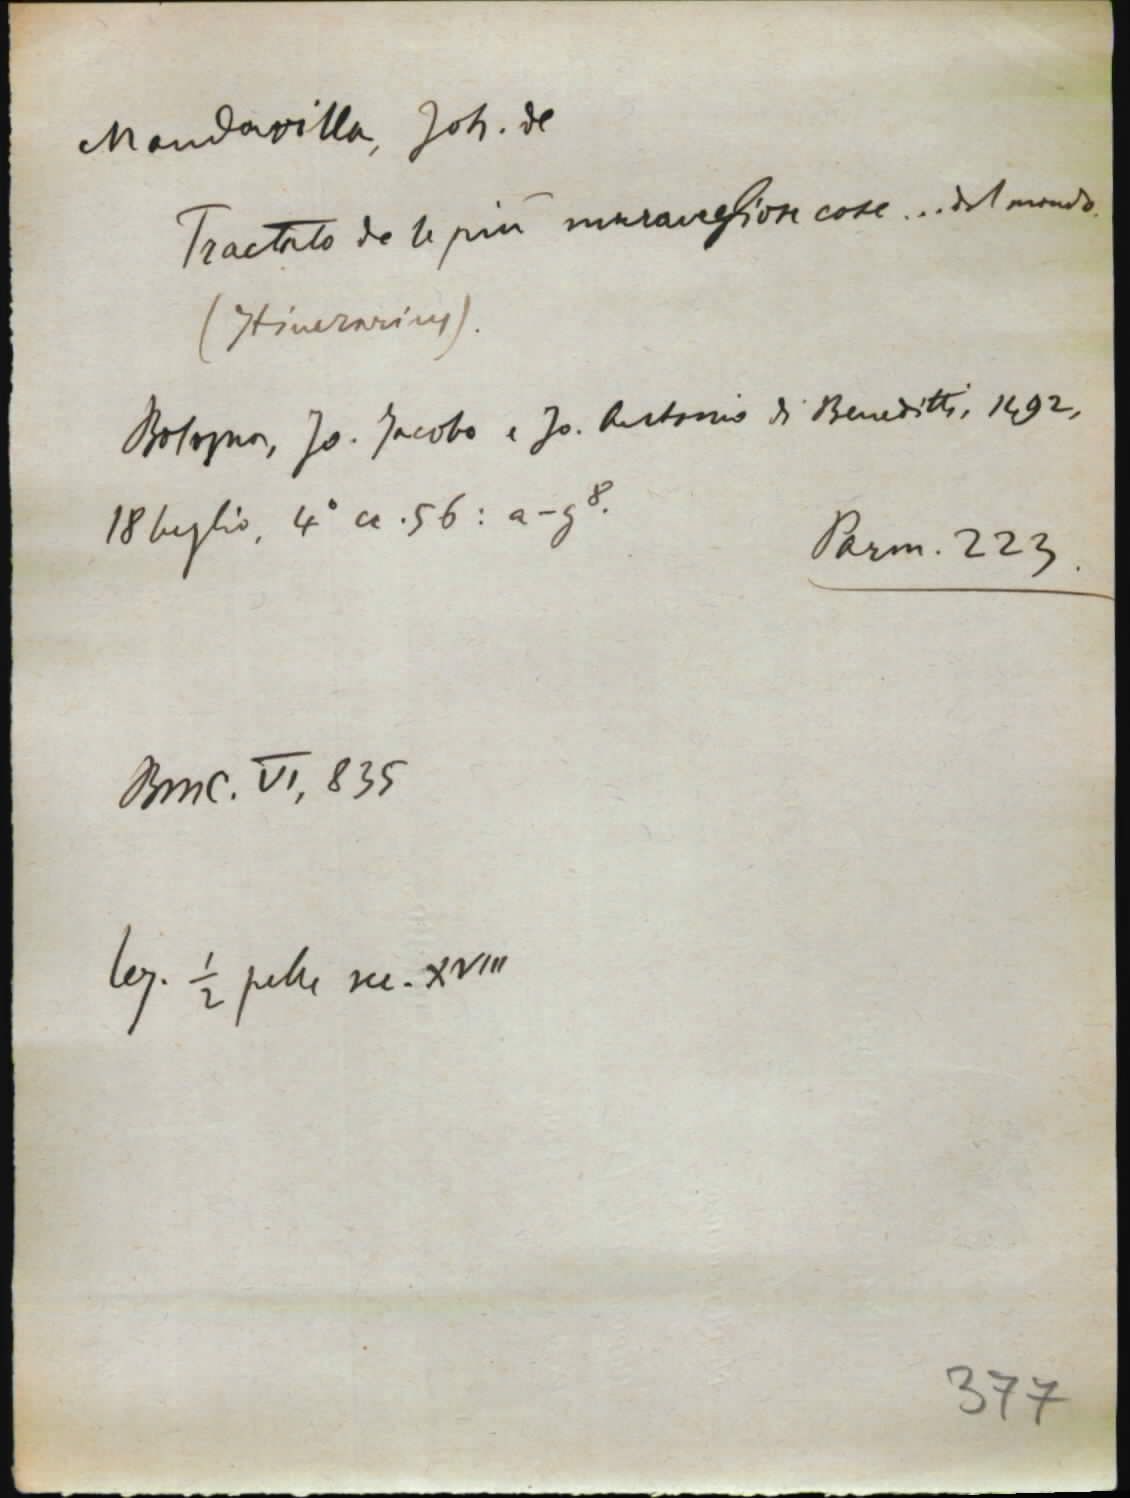 Mandavilla, Joh. de
Tractato de le più maravegliose cose ... del mondo.
(Itinerarius).
Bologna, Jo. Jacobo e Jo. Antonio di Beneditti, 1492,
18 luglio, 4° cc. 56: a-g⁸.
Parm. 223.
BMC. VI, 835
leg. ½ pelle sec. XVIII
377